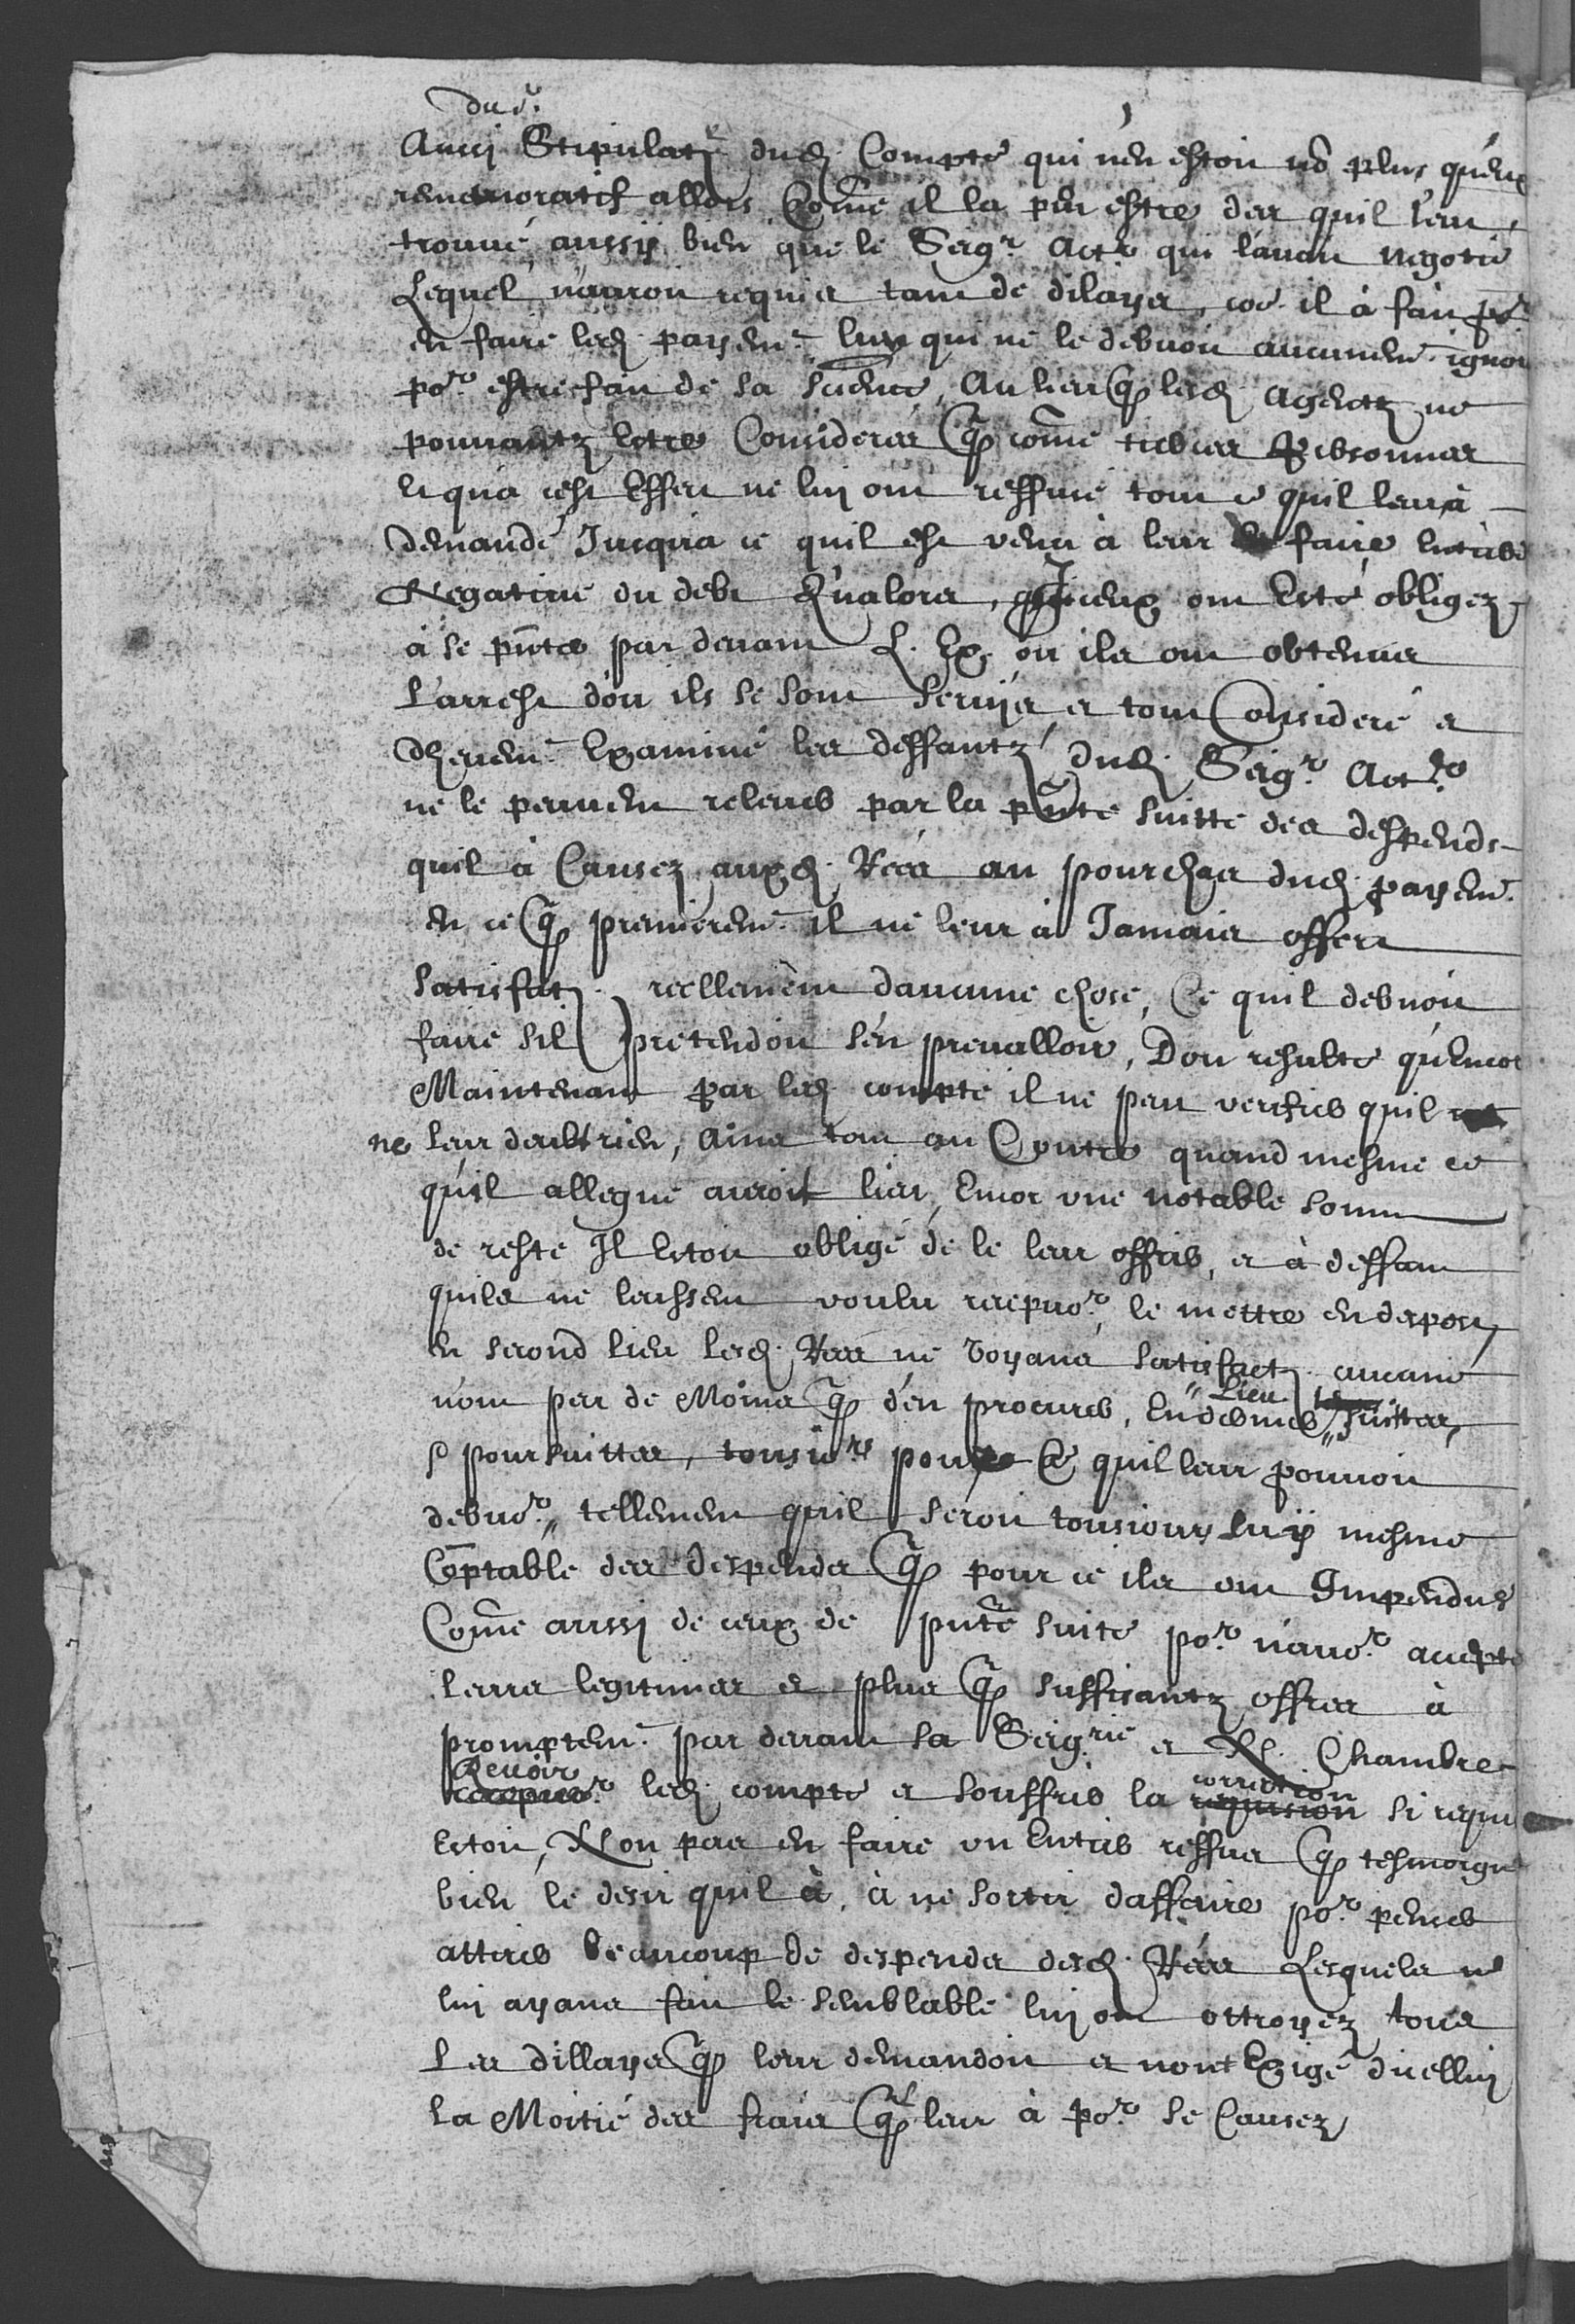 dud.
Aucy Stipulat. dud. Compte qui n'en estoit no plus qu'eux
rememoratif allors Come il la peu estre des quil l'eut
trouvé aussy bien que le Seigr Actr qui l'avoit negotié
Lequel n'auroit requis tant de dilays, coe il à fait por
en faire led. payemt. luy qui ne le debuoit aucunemt. ignor
por estre fait de sa science, Au lieu q lesd. Agentz ne
pouuantz estre Considerés q come tierces personnes
et qu'a cest Effect ne lui ont reffusé tout ce quil leur à
demandé Jusqu'a ce quil est venu à leur faire entiere
Negative du debt Qu'alors, Jceux ont Esté obligez
à se pnter par deuant L. Ex. ou ils ont obtenus
l'arrest dou ils se sont seruys, et tout Consideré et
dheuemt. Examiné les deffautz dud. Seigr Actr
ne le peuuent releuer par la pnte suitte des despends
quil à Causez auxd. Rées au pourchas dud. payemt.
en ce q premieremt. il ne leur à Jamais offert
satisfat. reellement daucune chose, Ce quil debuoit
faire sil pretendoit s'en preualloir, Dou resulte qu'encor
Maintenant par led. compte il ne peut verifier quil
ne leur deubt rien, Ains tout au Contre quand mesme ce
quil allegue auroit lieu, Encor vne notable somme
de reste Il Estoit obligé de le leur offrir, et à deffaut
quils ne leussent voulu recepuor le mettre en depost,
En second lieu lesd. Rées ne voyans satisfact. aucune
n'ont peu de Moins q d'en procurer, En debues Lieu suittes,
& poursuittes, tousiors pour ce quil leur pouuoit
debuor, tellement quil seroit tousiours luy mesme
Comptable des despends q pour ce ils ont Impendus
Come aussi de ceux de pnte suite por n'auor accepté
leurs legitimes et plus q suffisantz offres à
promptemt. par deuant sa Seigrie et Chambre
Reuoir led. compte et souffrir la correction si requis
Estoit, Non pas en faire vn Entier reffus q tesmoigne
bien le desir quil à, à ne sortir daffaire por penser
attirer beaucoup de despends desd. Rées Lesquels ne
lui ayans fait le semblable lui ont ottroyez tous
Les dillays q leur demandoit et n'ont Exigé dicelluy
La Moitié des fraix ql leur à por ce Causez